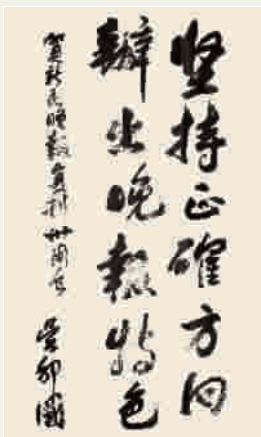 坚持正確方向
辦出晚報特色
賀新民晚報復刊卅周年